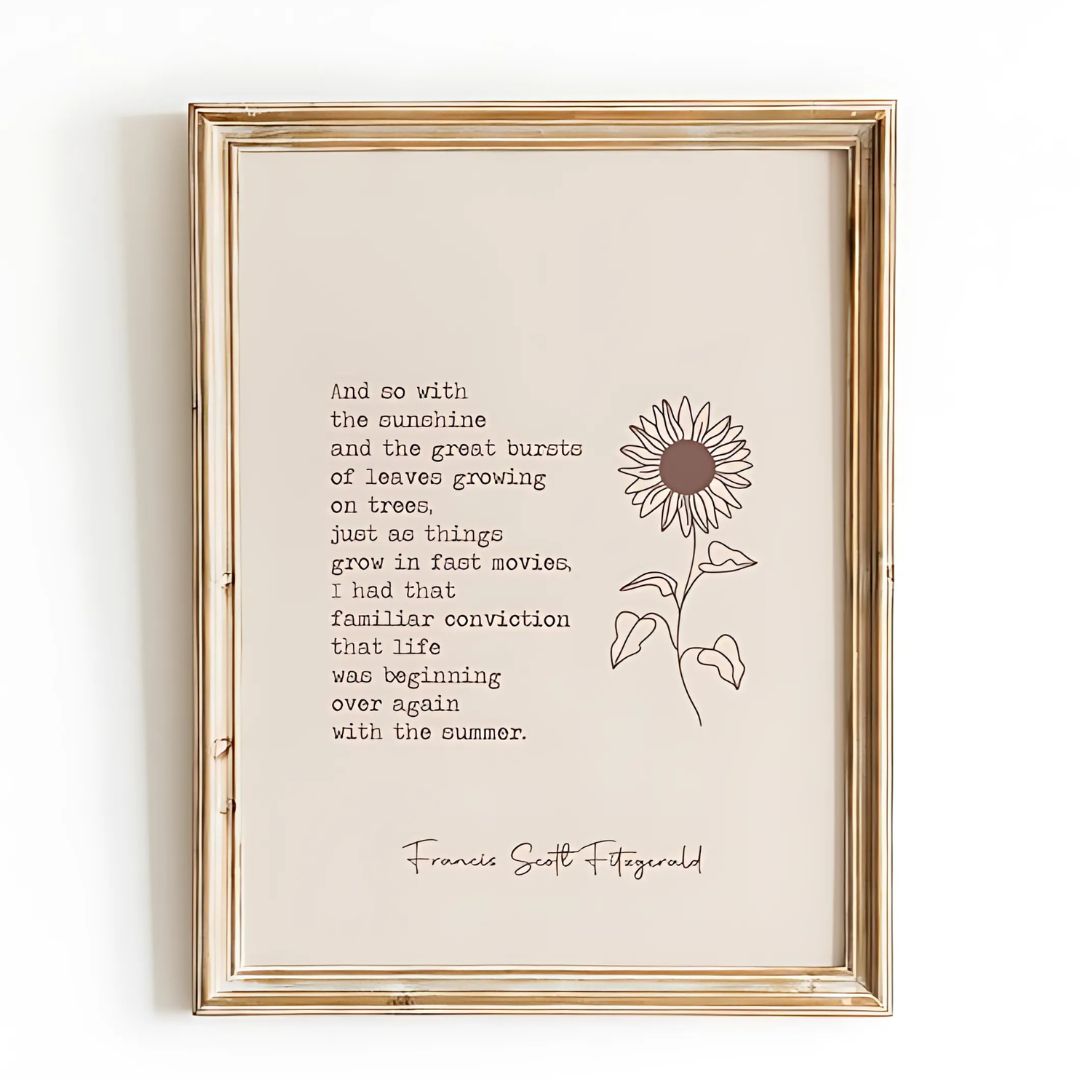 And so with
the sunshine
and the great bursts
of leaves growing
on trees,
just as things
grow in fast movies,
I had that
familiar conviction
that life
was beginning
over again
with the summer.
Francis Scott Fitzgerald